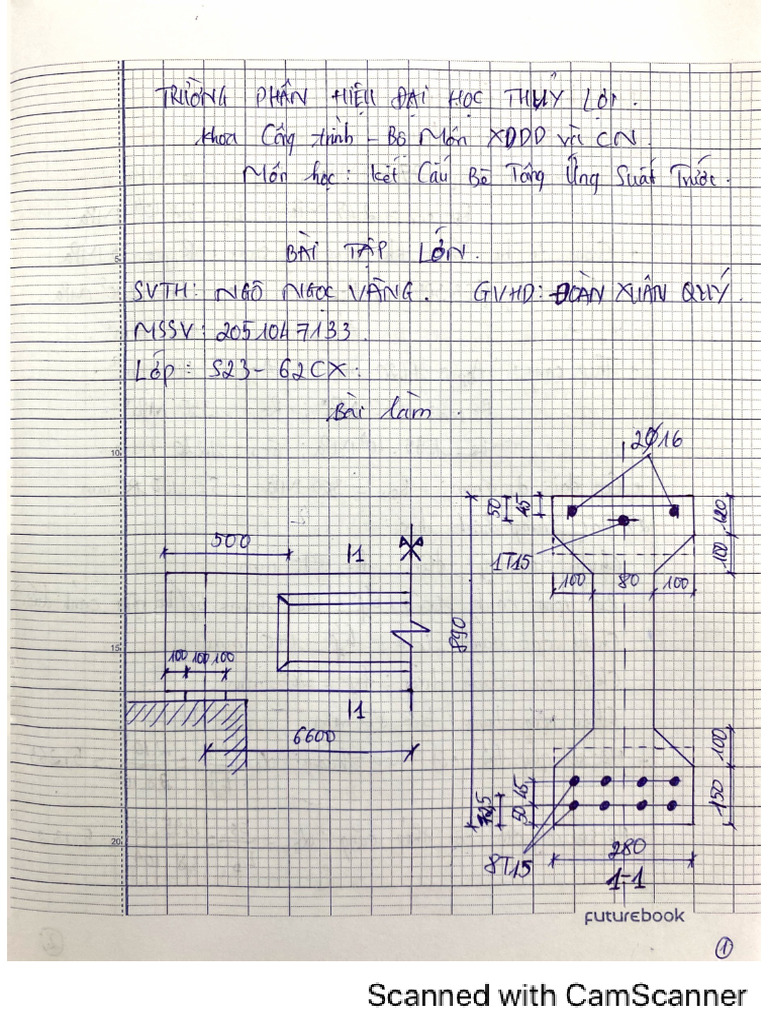 TRƯỜNG PHÂN HIỆU ĐẠI HỌC THUỶ LỢI.
Khoa Công trình - Bộ Môn XDDD và CN.
Môn học: Kết Cấu Bê Tông Ứng Suất Trước.
BÀI TẬP LỚN.
SVTH: NGÔ NGỌC VÀNG. GVHD: ĐOÀN XUÂN QUÝ.
MSSV: 2051047133.
Lớp: S23-62CX.
Bài làm.
5
10
15
20
2Ø16
50 45
120
100
1T15
100 80 100
500
1 1
890
100 100 100
1 1
6600
100
45
50
150
8T15
280
1-1
futurebook
1
Scanned with CamScanner